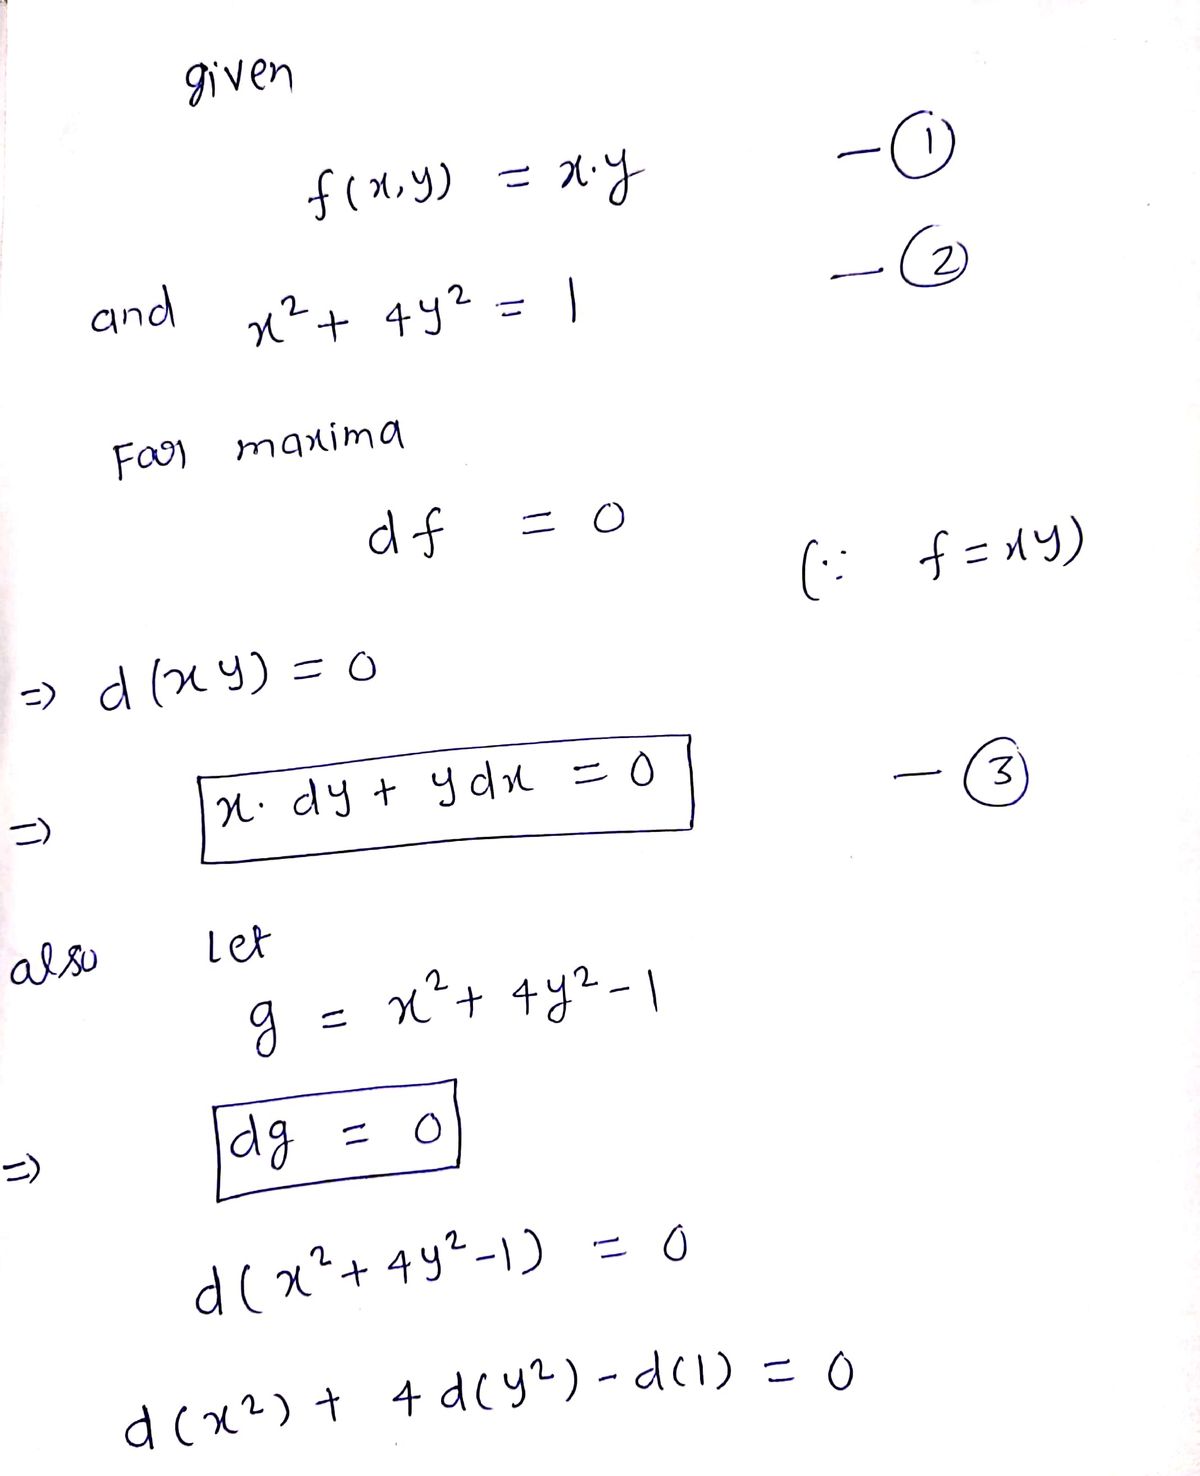 given
f(x,y) = x.y -①
and x² + 4y² = 1 -②
For maxima
df = 0
(∵ f = xy)
⇒ d(xy) = 0
⇒ x. dy + y dx = 0 -③
also Let
g = x² + 4y² - 1
⇒ dg = 0
d(x² + 4y² - 1) = 0
d(x²) + 4 d(y²) - d(1) = 0